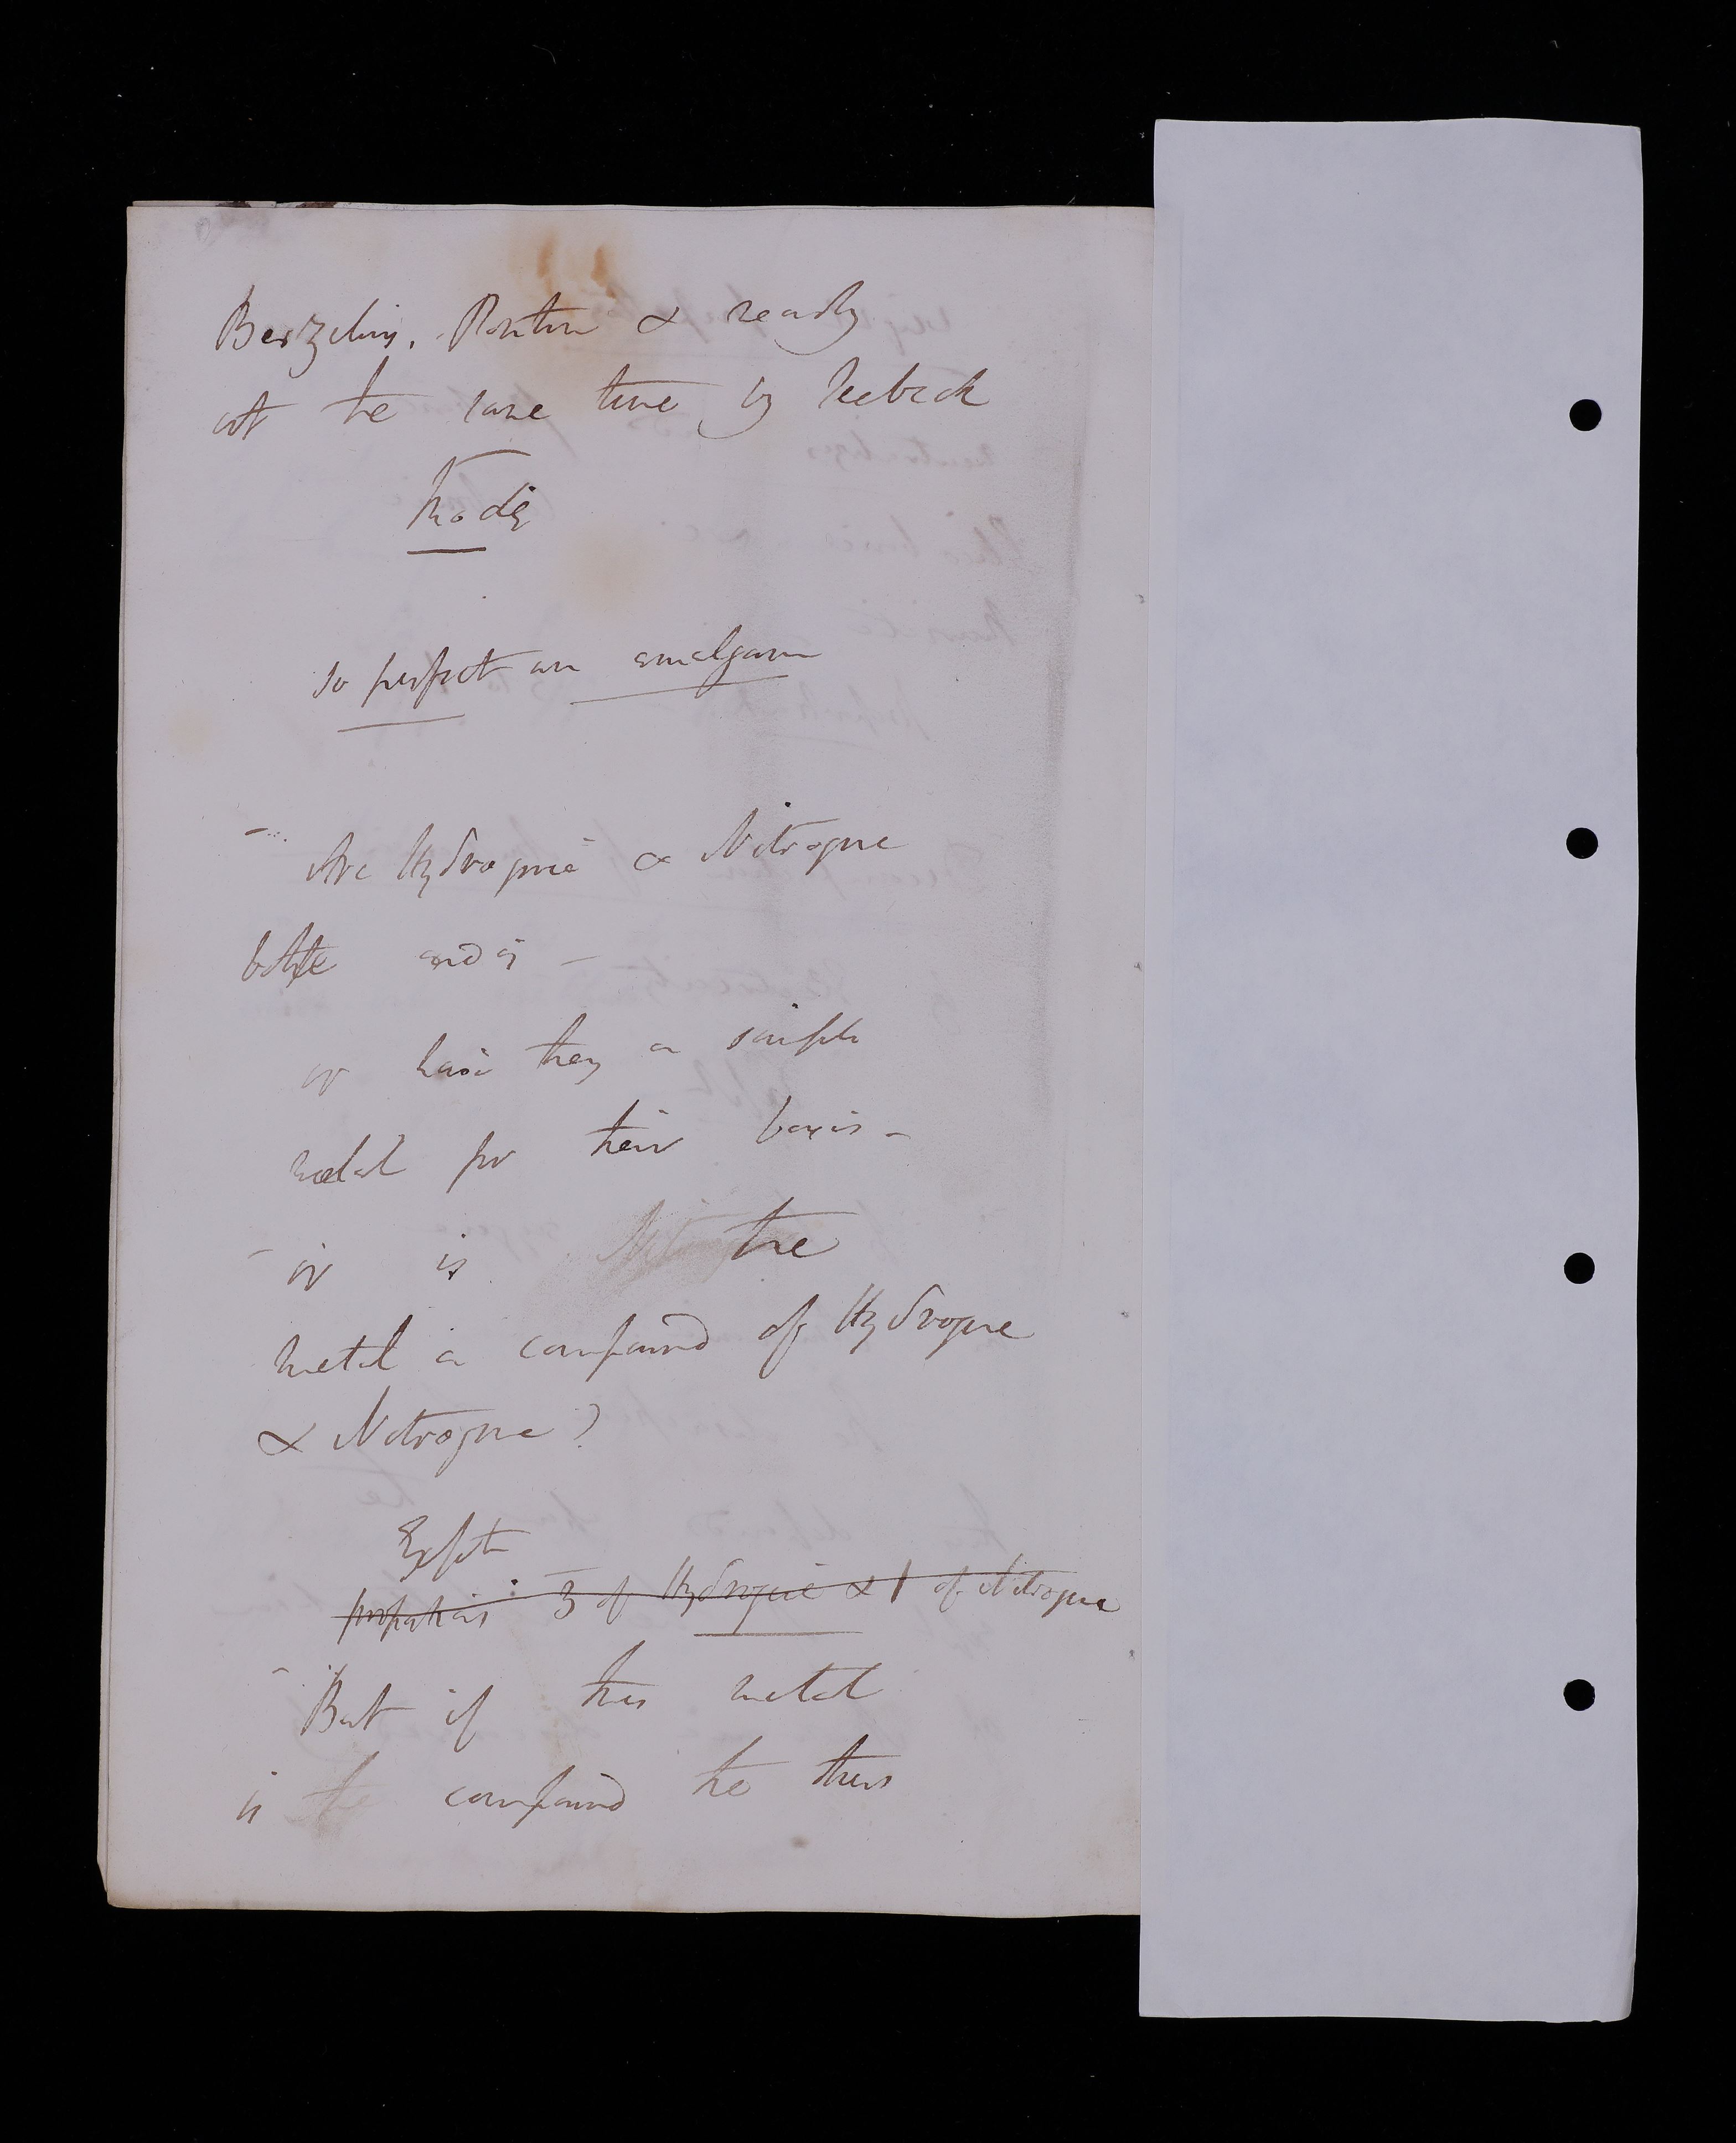 Berzelius. Pontin & nearly
at the same time by Seebeck
so perfect an amalgam
Are Hydrogene & Nitrogene
both
or have they a simple
metal for their basis –
– or is the
metal a compound of Hydrogene
& Nitrogene?
proportions 3 of Hydrogene & 1 of Nitrogene
– But if this metal
is the compound the